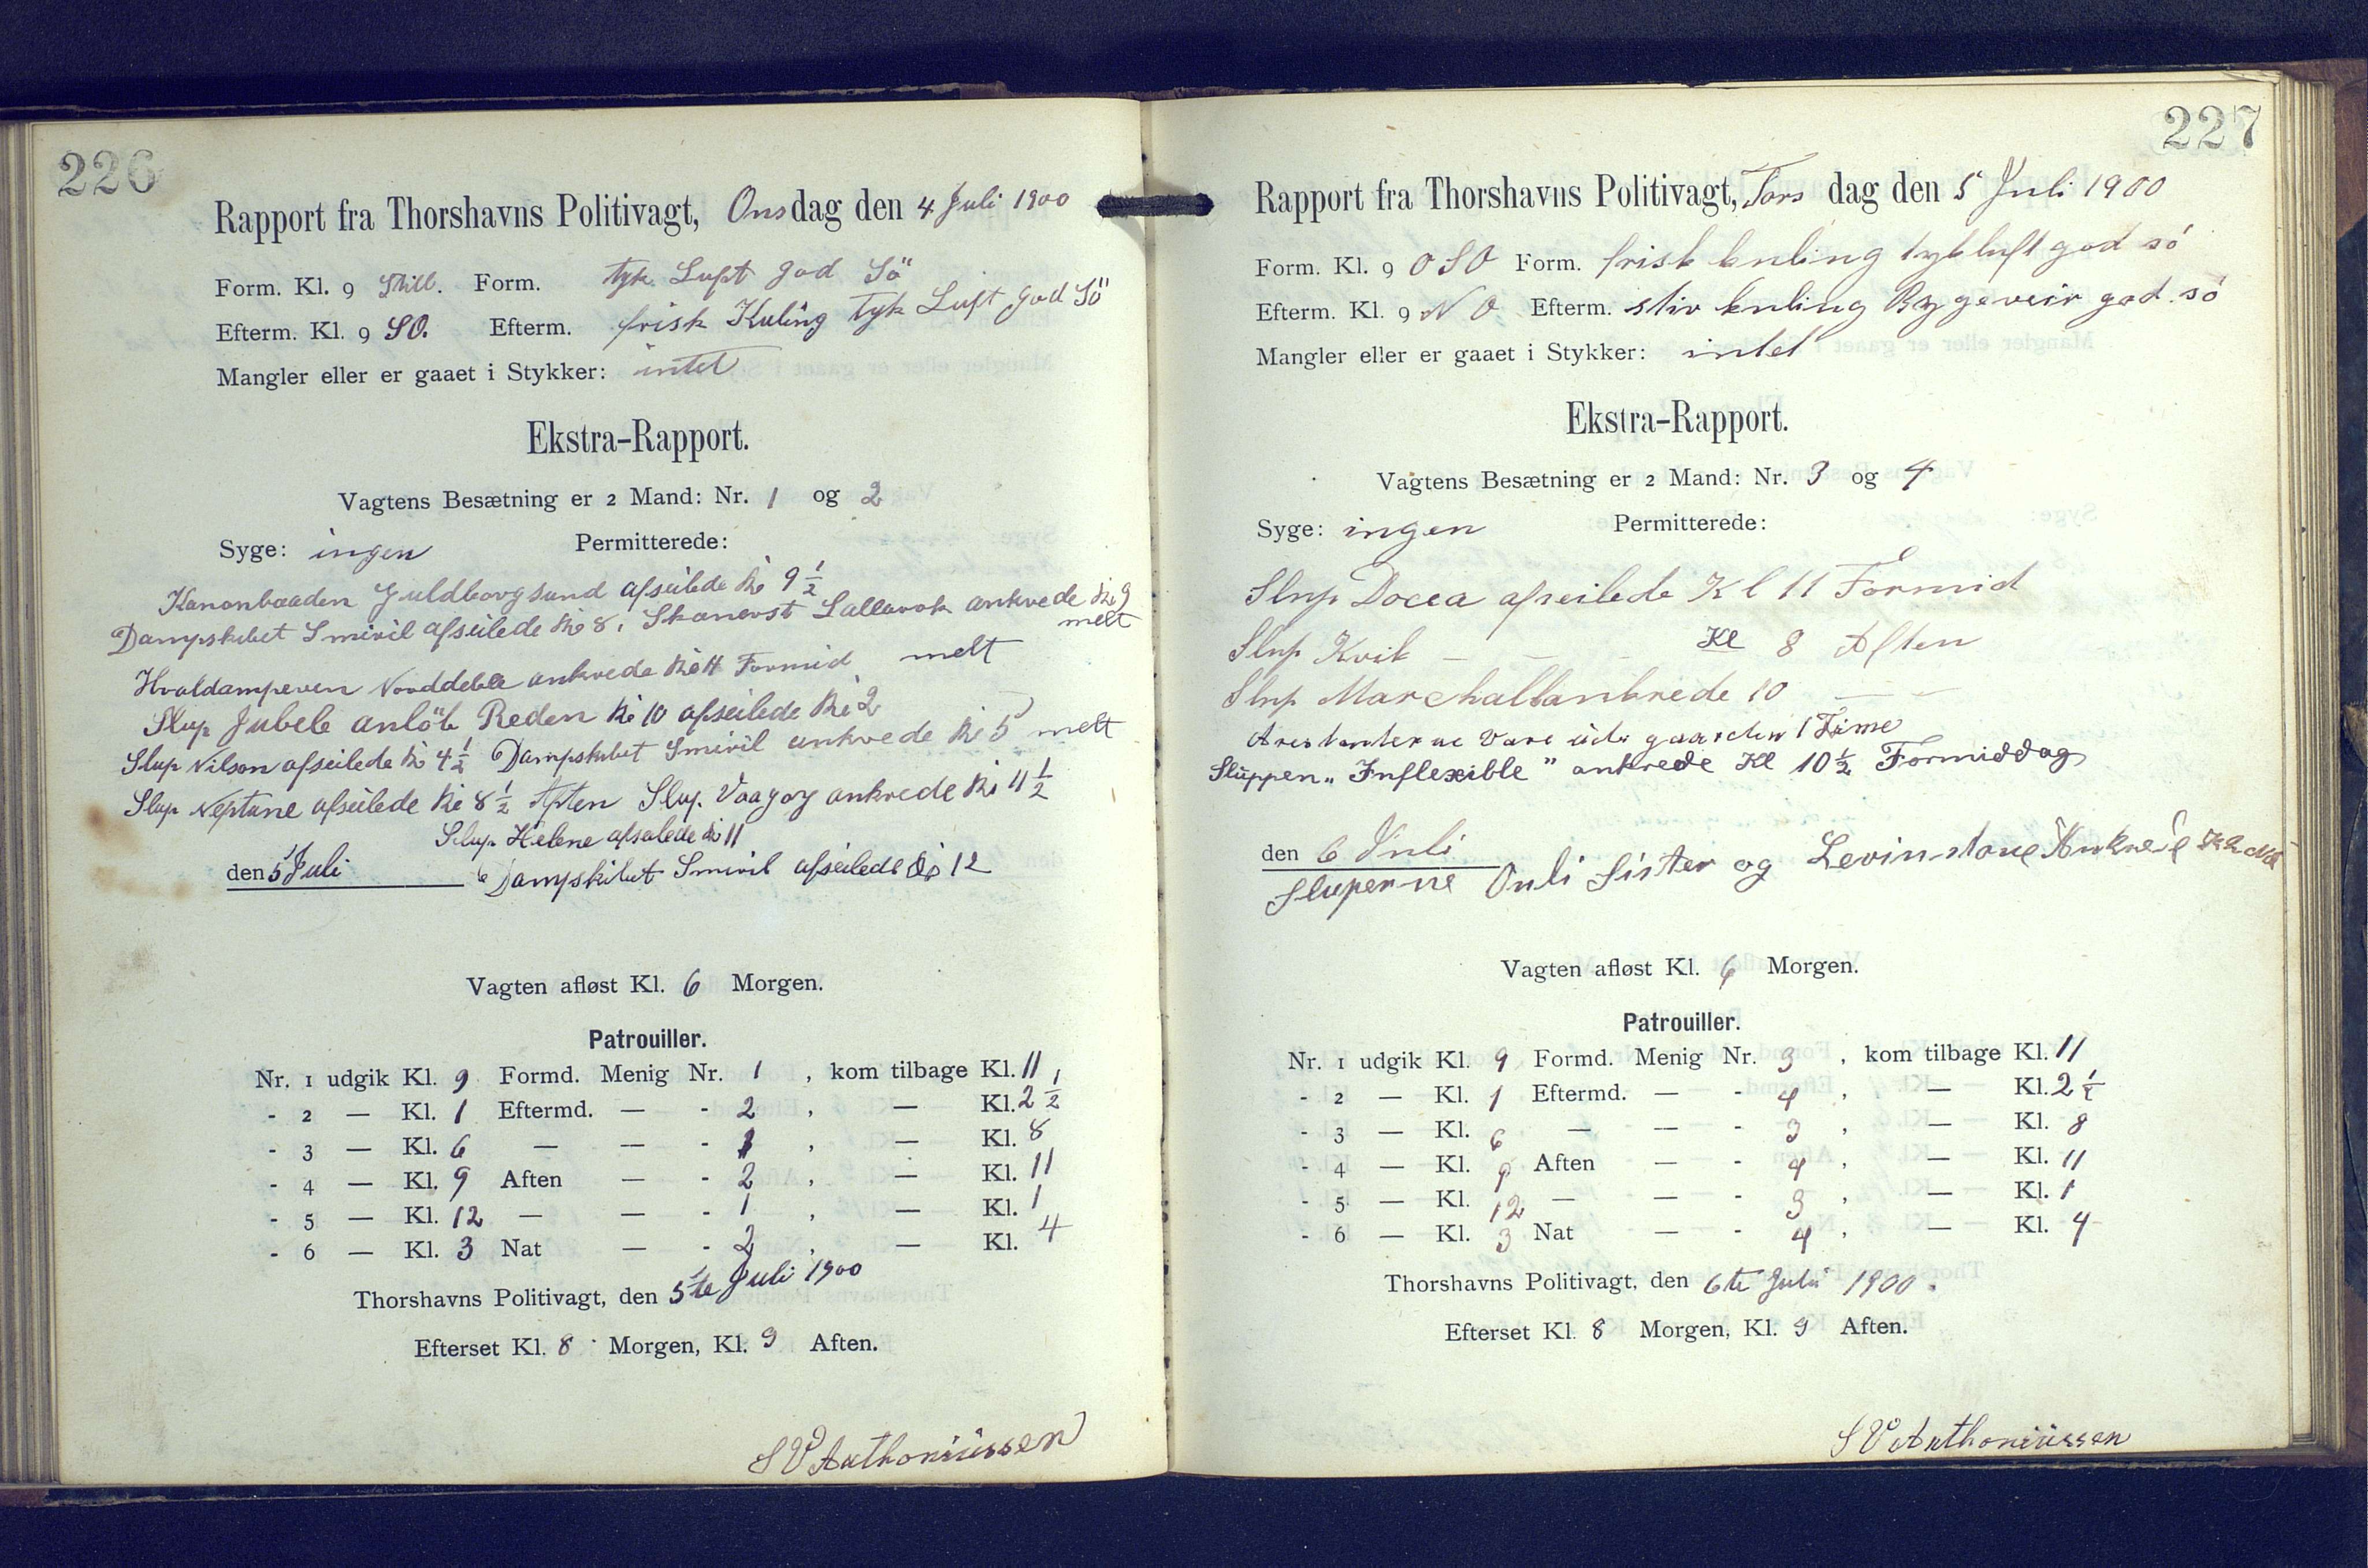 226
Rapport fra Thorshavns Politivagt, Onsdag den 4 Juli 1900
Form. Kl. 9 Still. Form. tyk Luft god Sö
Efterm. Kl. 9 SO. Efterm. frisk Kuling tyk Luft god Sö
Mangler eller er gaaet i Stykker: intet
Ekstra-Rapport.
Vagtens Besætning er 2 Mand: Nr. 1 og 2
Syge: ingen Permitterede:
Kanonbaaden Guldborgsund afseilede Kl 9 1/2
Dampskibet Smiril afseilede Kl 8, Skonerst ankrede Kl 9
melt
Hvaldamperen ankrede Kl 11 Formid melt
Slup Jubele anlöb Reden Kl 10 afseilede Kl 2
Slup Nilson afseilede Kl 4 1/2 Dampskibet Smiril ankrede Kl 5 melt
Slup Neptune afseilede Kl 8 1/2 Aften Slup. Vaagoy ankrede Kl 11 1/2
Slup Helene afsalede Kl 11
den 5 Juli Dampskibet Smiril afseilede Kl 12
Vagten afløst Kl. 6 Morgen.
Patrouiller.
Nr. 1 udgik Kl. 9 Formd. Menig Nr. 1 , kom tilbage Kl. 11
- 2 — Kl. 1 Eftermd. — - 2 , — Kl. 2 1/2
- 3 — Kl. 6 — — - 1 , — Kl. 8
- 4 — Kl. 9 Aften — - 2 , — Kl. 11
- 5 — Kl. 12 — — - 1 , — Kl. 1
- 6 — Kl. 3 Nat — - 2 , — Kl. 4
Thorshavns Politivagt, den 5te Juli 1900
Efterset Kl. 8 Morgen, Kl. 9 Aften.
S V Anthoniüssen
227
Rapport fra Thorshavns Politivagt, Tors dag den 5 Juli 1900
Form. Kl. 9 OSO Form. frisk kuling tyk luft god sö
Efterm. Kl. 9 NO Efterm. stiv kuling Bygeveir god sö
Mangler eller er gaaet i Stykker: intet
Ekstra-Rapport.
Vagtens Besætning er 2 Mand: Nr. 3 og 4
Syge: ingen Permitterede:
Slup Docea afseilede Kl 11 Formid
Slup Kvik — — — Kl 8 Aften
Slup Marchall ankrede 10 — —
Arestanterne vare üde gaarden 1 Time
Slüppen „Inflexible" ankrede Kl 10 1/2 Formiddag
den 6 Juli
Sluperne Onli Sister og Levinstone Ankrede
Vagten afløst Kl. 6 Morgen.
Patrouiller.
Nr. 1 udgik Kl. 9 Formd. Menig Nr. 3 , kom tilbage Kl. 11
- 2 — Kl. 1 Eftermd. — - 4 , — Kl. 2 1/2
- 3 — Kl. 6 — — - 3 , — Kl. 8
- 4 — Kl. 9 Aften — - 4 , — Kl. 11
- 5 — Kl. 12 — — - 3 , — Kl. 1
- 6 — Kl. 3 Nat — - 4 , — Kl. 4
Thorshavns Politivagt, den 6te Juli 1900.
Efterset Kl. 8 Morgen, Kl. 9 Aften.
S V Anthoniüssen